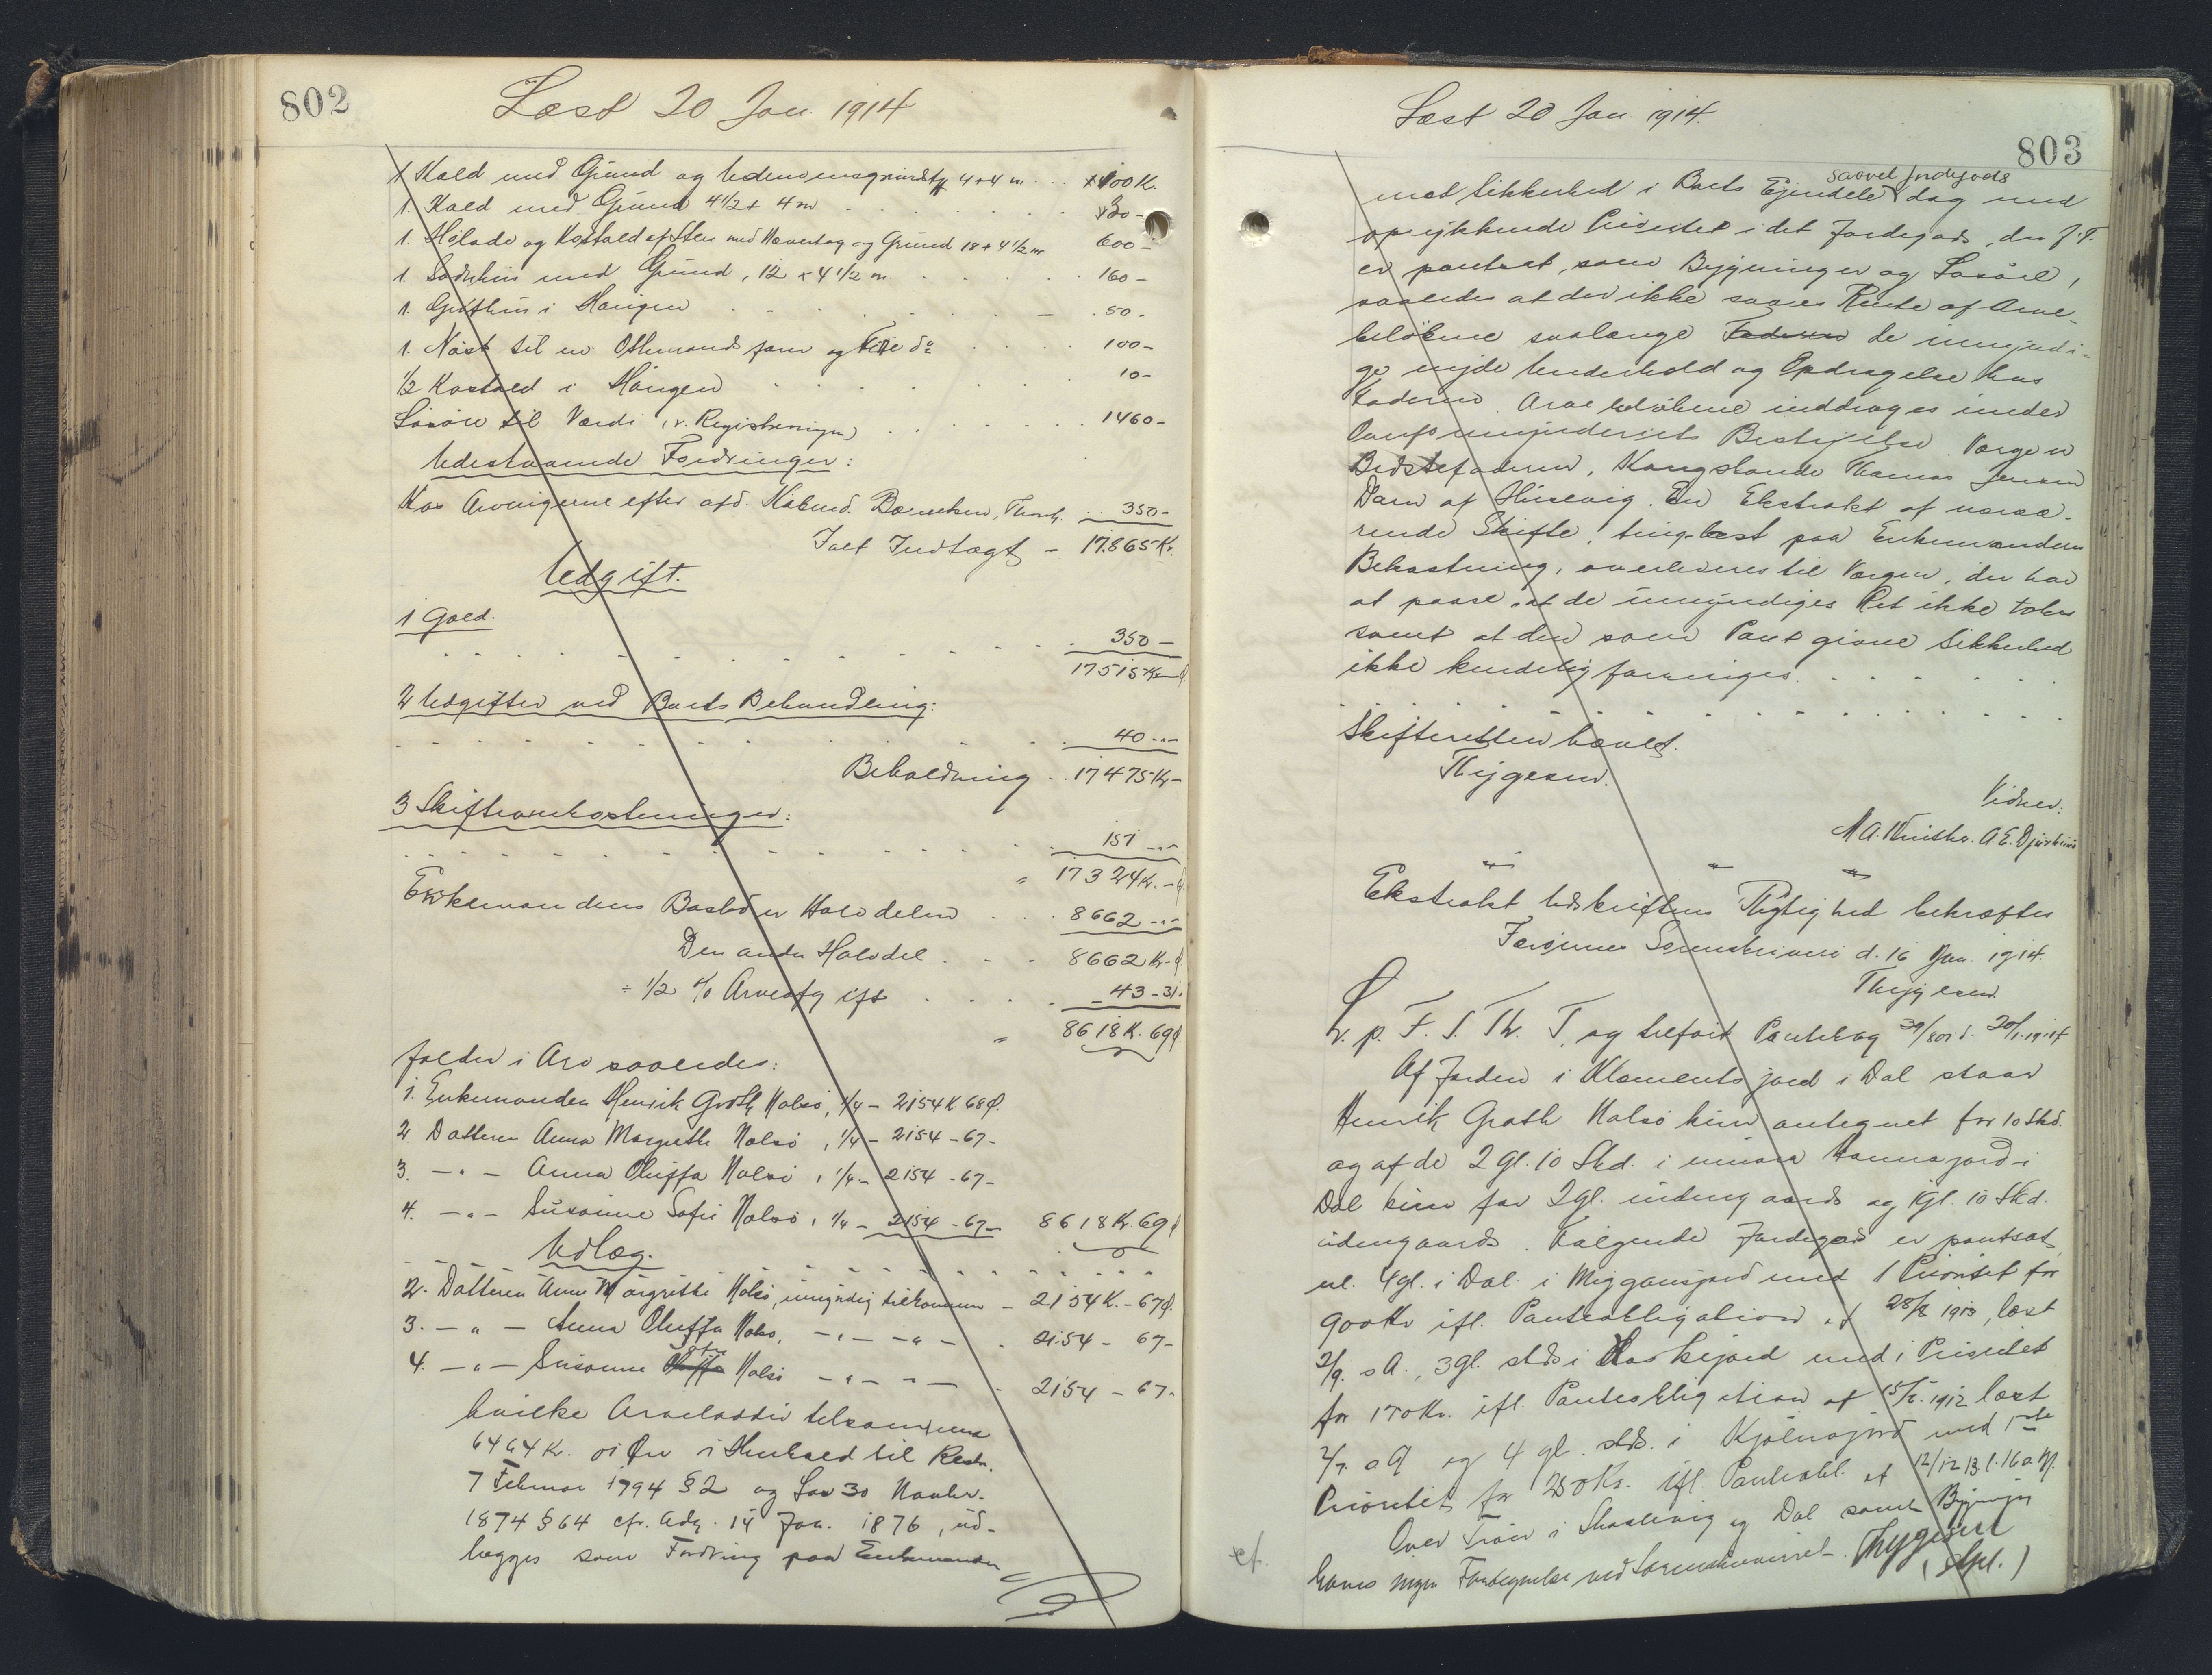 802
Læst 20 Jan. 1914
1 Kald med Grund og Udenomsgrund 4 + 4 m . . . 100 K.
1. Kald med Grund 4 1/2 + 4 m . . . 30 -
1. Hölade og Kostald af Sten med Havertag og Grund 18 + 4 1/2 m 600 -
1. Sædehus med Grund, 12 x 4 1/2 m . . . 160 -
1. Grothus i Haugen . . . 50 -
1. Nöst til en Ottemandsfarer og Fire do . . . 100 -
1/2 Kostald i Haugen . . . 10 -
Lösöre til Værdi (v. Registreringen) . . . 1460 -
Udestaaende Fordringer:
Hos Arvingerne efter afd. Köbmd. Thorsh. . . 350 -
Ialt Indtægt - 17.865 Kr.
Udgift.
1 Gæld.
. . . 350 -
17515 Kr
2 Udgifter ved Boets Behandling:
. . . 40 -
Beholdning . . 17475 Kr -
3 Skifteomkostninger:
. . . 151 -
= 17324 Kr. -
Enkemandens Boslod er Halvdelen . . . 8662 -
Den anden Halvdel . . . 8662 Kr -
÷ 1/2 % Arveafgift . . . 43 - 31.
= 8618 K. 69 Ø
falder i Arv saaledes:
1. Enkemanden Henrik Groth Nolsö, 1/4 - 2154 K 68 Ø.
2. Datteren Anna Margrethe Nolsö, 1/4 - 2154 - 67 -
3. - " - Anna Oluffa Nolsö, 1/4 - 2154 - 67 -
4. - " - Susanne Sofie Nolsö, 1/4 - 2154 - 67 - 8618 Kr 69 Ø
Udlæg.
2. Datteren Anna Margrethe Nolsö, umyndig tilkommer - 2154 K. - 67 Ø.
3. - " - Anna Oluffa Nolsö, - " - - " - . 2154 - 67 -
4. - " - Susanne Oluffa Sofie Nolsö - " - - " - . 2154 - 67 -
hvilke Arvelodder tilsammen
6464 Kr. 01 Øre i Henhold til Restr.
7 Februar 1794 § 2 og Lov 30 Novbr.
1874 § 64 cfr. Adg. 14 Jan. 1876, ud-
lægges som Fordring paa Enkemanden
Læst 20 Jan 1914.
803
mod Sikkerhed i Boets Ejendele saavel Jordegods dag med
oprykkende Prioritet i det Jordegods, der f. T.
er pantsat, som Bygninger og Lösöre,
saaledes at der ikke svares Rente af Arve-
belöbene saalænge Faderen de umyndi-
ge nyde Underhold og Opdragelse hos
Faderen. Arvebelöbene inddrages under
Overformynderiets Bestyrelse. Værge er
Bedstefaderen, Kongsbonde Thomas Jensen
Dam af Husevig. En Ekstrakt af nærvæ-
rende Skifte, tinglæst paa Enkemandens
Bekostning, overleveres til Værgen, der har
at paase, at de umyndiges Ret ikke taber
samt at den som Pant givne Sikkerhed
ikke kendelig forringes. . . .
Skifteretten hævet.
Thygesen.
Vidner:
M. A. Winther. A. E. Djurhuus
Ekstrakt Udskriftens Rigtighed bekræftes
Færöernes Sorenskriveri d. 16 Jan. 1914.
Thygesen
v. p. F. S. Th. T. og tilföit Pantebog 39/801 d. 20/1. 1914
Af Jorden i Klæmentsjord i Dal staar
Henrik Groth Nolsö kun antegnet for 10 Skd.
og af de 2 gl. 10 Skd. i Hannajord i
Dal kun for 2 gl. indengaards og 1 gl. 10 Skd.
udengaards. Følgende Jordegods er pantsat,
nl. 4 gl. i Dal i Miggansjord med 1 Prioritet for
900 Kr ifl. Panteobligation af 28/8 1913, læst
2/9. s A., 3 gl. stds i med 1 Prioritet
for 170 Kr. ifl. Panteobligation af 15/5. 1912 læst
2/7. s A og 4 gl. stds. i Kjölnajord med 1ste
Prioritet for 250 Kr. ifl Panteobl. af 12/12 13 l. 16 a. M.
Over Tröer i Skaalevig og Dal samt Bygninger
haves ingen Fortegnelse ved Sorenskriveriet. Thygesen
(spl.)
cf.